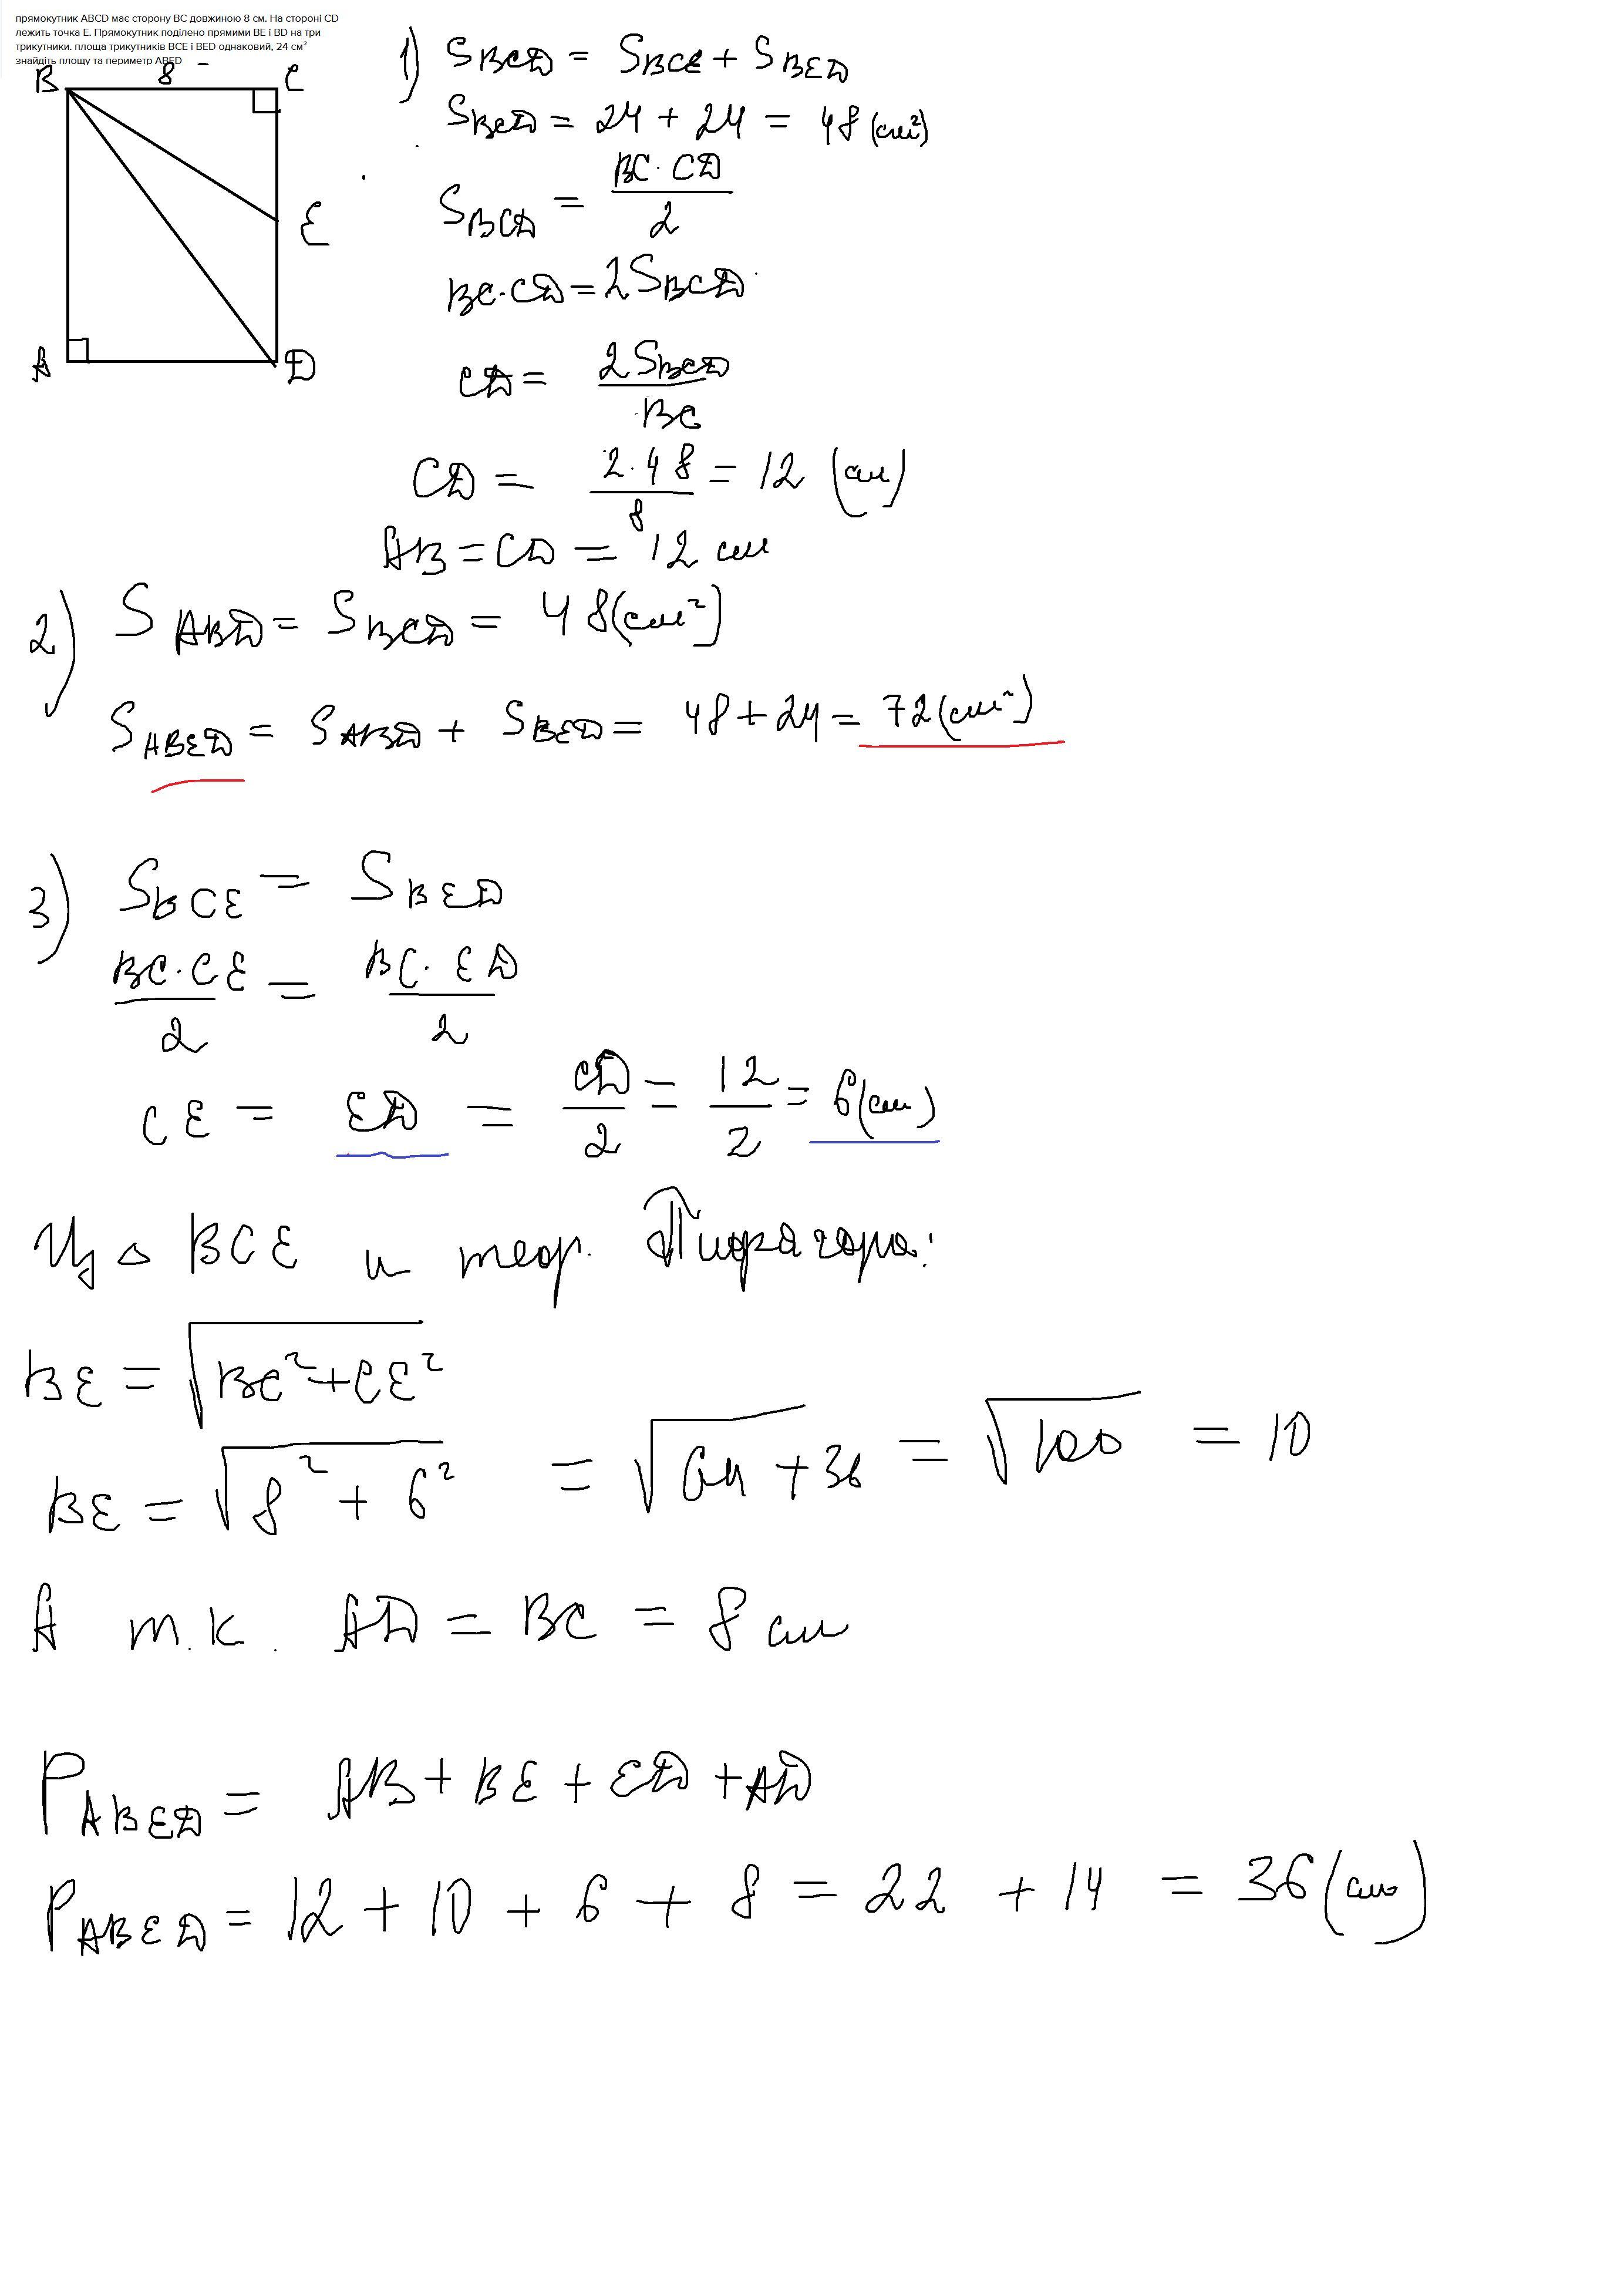 прямокутник ABCD має сторону BC довжиною 8 см. На стороні CD
лежить точка E. Прямокутник поділено прямими BE і BD на три
трикутники. площа трикутників BCE і BED однаковий, 24 см²
знайдіть площу та периметр ABED
B 8 C
E
A D
1) S_BCD = S_BCE + S_BED
S_BCD = 24 + 24 = 48 (см²)
S_BCD = BC · CD / 2
BC · CD = 2S_BCD
CD = 2S_BCD / BC
CD = 2·48 / 8 = 12 (см)
AB = CD = 12 см
2) S_ABD = S_BCD = 48 (см²)
S_ABED = S_ABD + S_BED = 48 + 24 = 72 (см²)
3) S_BCE = S_BED
BC · CE / 2 = BC · ED / 2
CE = ED = CD / 2 = 12 / 2 = 6 (см)
Из △ BCE и теор. Пифагора:
BE = √(BC² + CE²)
BE = √(8² + 6²) = √(64 + 36) = √100 = 10
А т.к. AD = BC = 8 см
P_ABED = AB + BE + ED + AD
P_ABED = 12 + 10 + 6 + 8 = 22 + 14 = 36 (см)